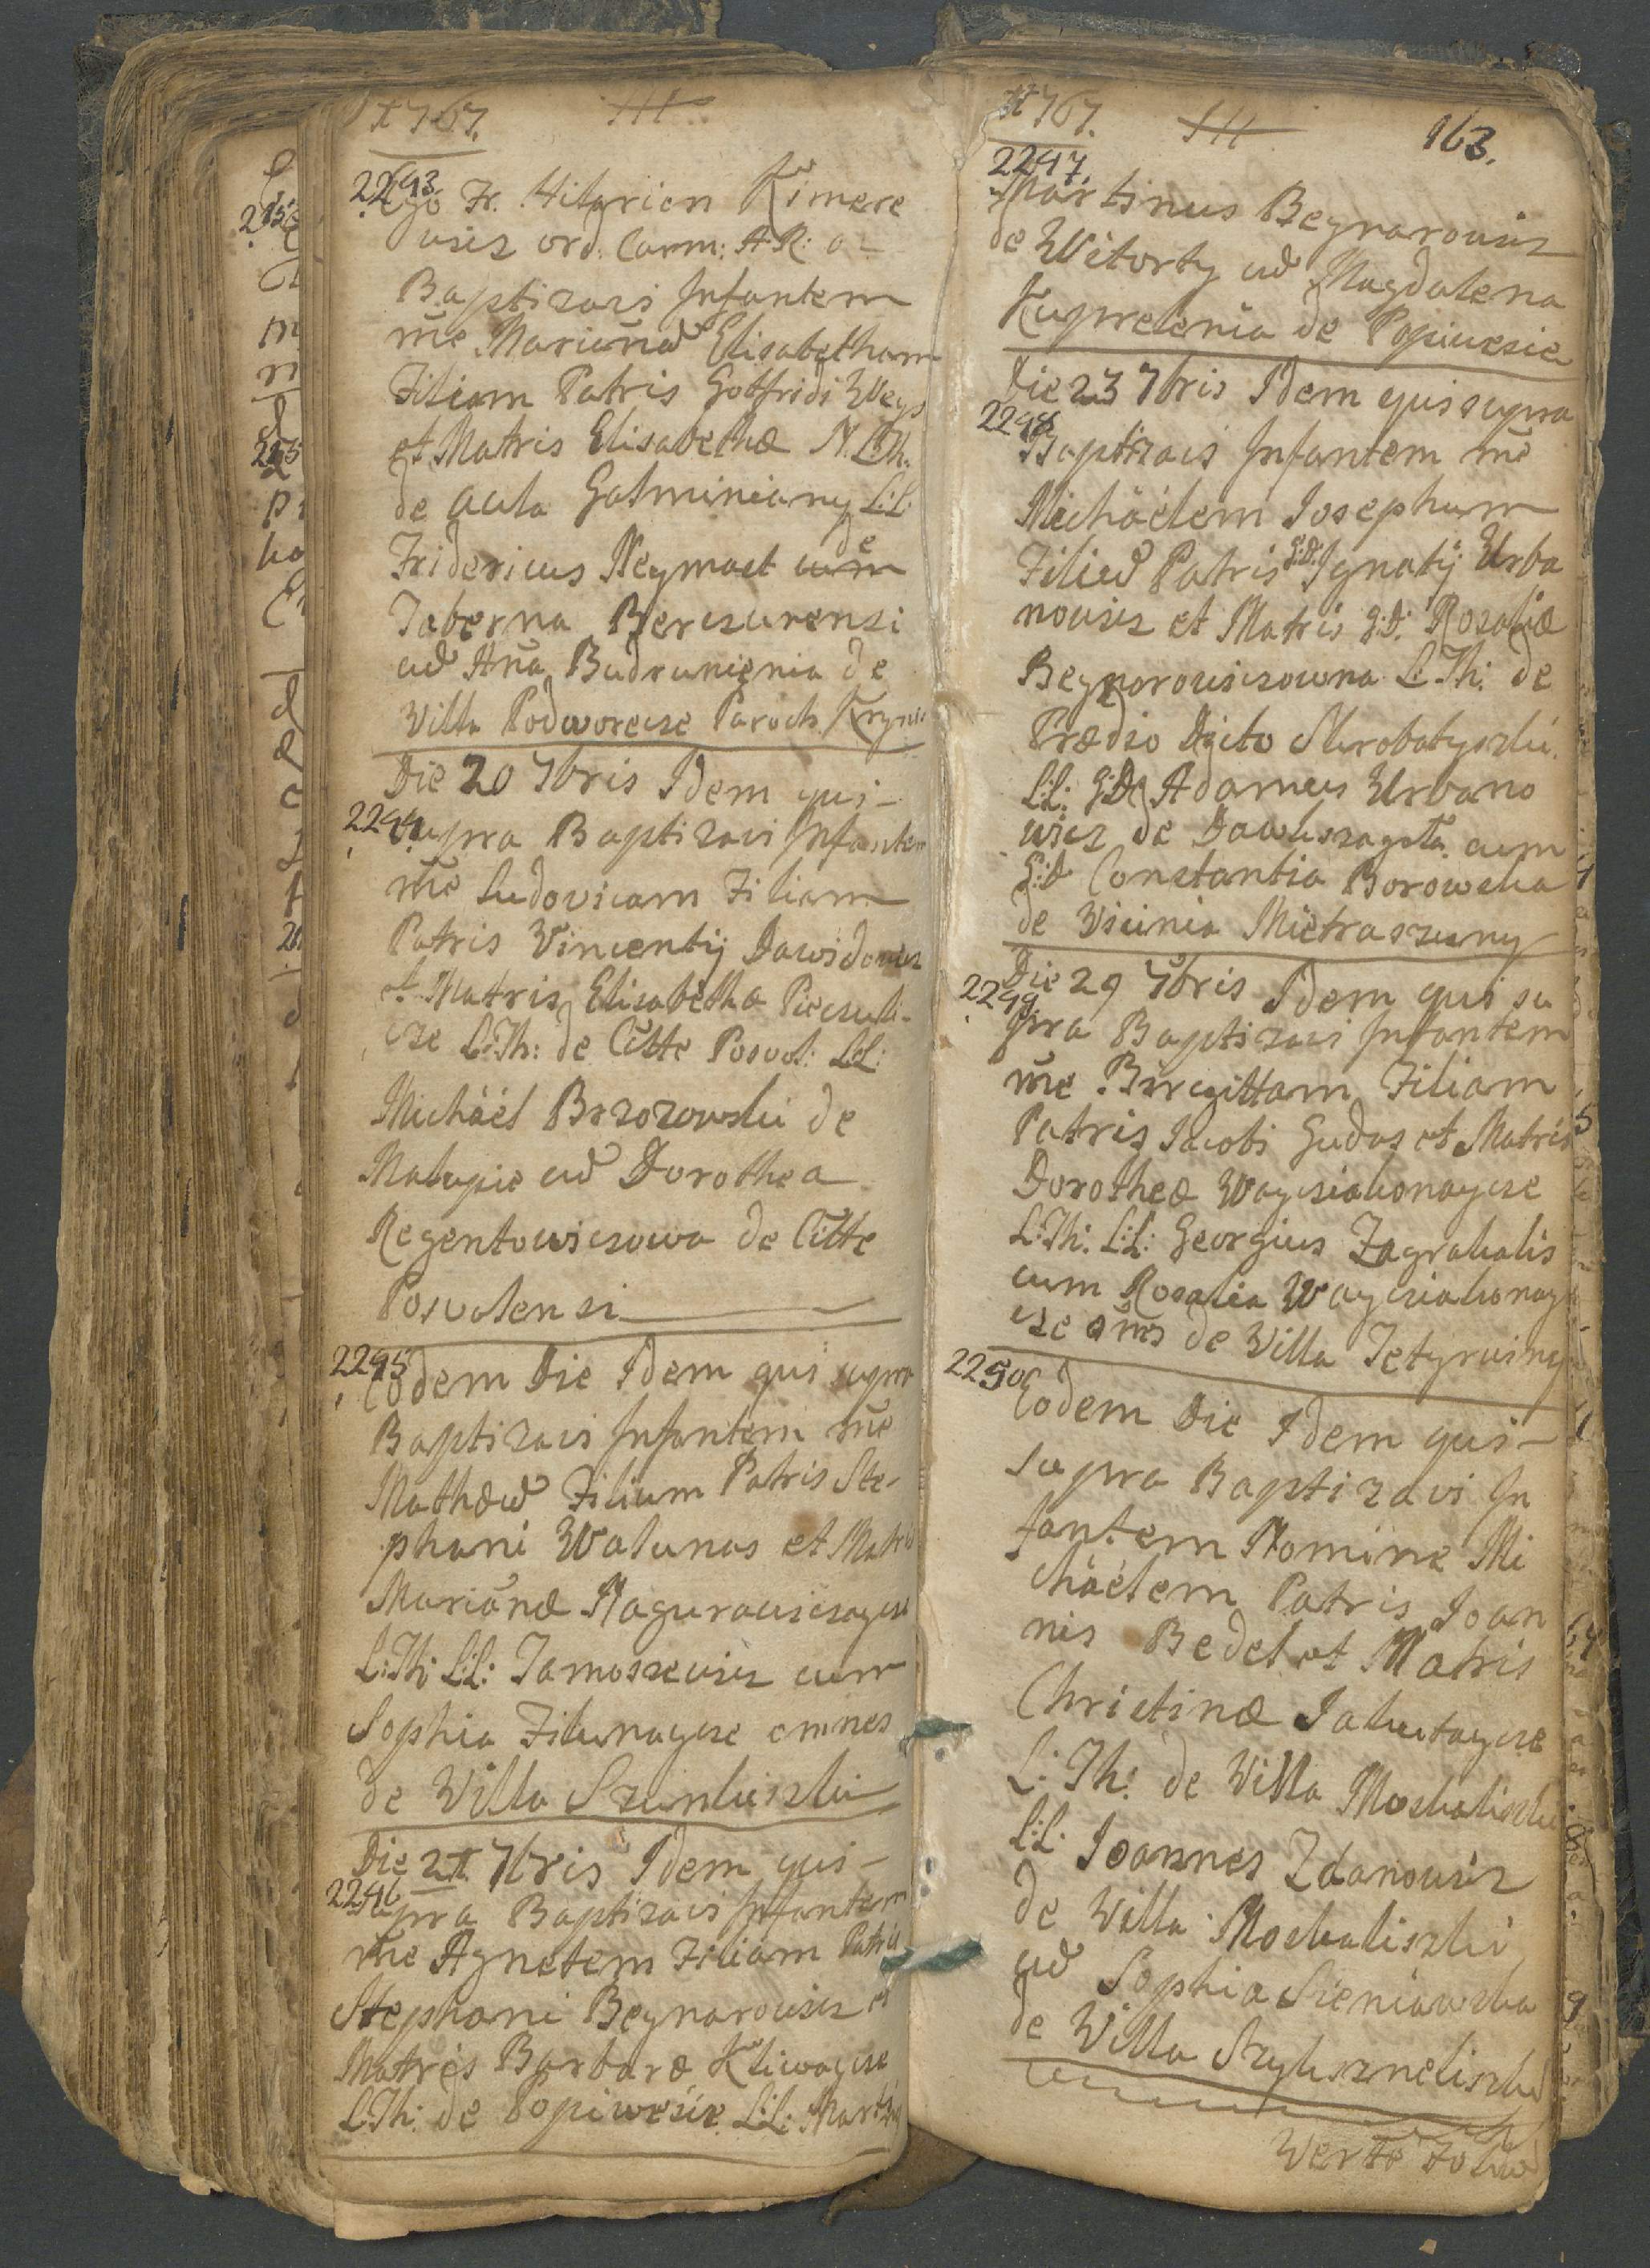 1767.
2293.
Ego Fr. Hilarion Kimere
wicz ord: Carm: A:R: o:
Baptizavi Infantem
nñe Marianā Elisabetham
Filiam Patris Gotfridi Weys
et Matris Elisabethæ N. L:Th:
de aula Gatminiany L:L:
Fridericus Neymact de
Taberna Berczurensi
cū Aña Budrunienia de
Villa Podworecze Paroch. Kryni
Die 20 7bris Idem qui-
2294.
supra Baptizavi Infantem
nñe Ludovicam Filiam
Patris Vincentij Dawidowicz
et Matris Elisabethæ Pieczuli-
cze L:Th: de Citte Posvol: L:L:
Michäel Brzozowski de
Malupie cū Dorothea
Regentowiczowa de Citte
Posvolensi
2295
Eodem Die Idem qui supra
Baptizavi Infantem nñe
Mathæū Filium Patris Ste-
phani Walunas et Matris
Mariañæ Nagurawiczaycze
L:Th: L:L: Tamoszewicz cum
Sophia Filunaycze omnes
de Villa Szunkiszki
Die 21 7bris Idem qui-
2296
supra Baptizavi Infantem
nñe Agnetem Filiam Patris
Stephani Beynarowicz et
Matris Barbaræ Kliwaycze
L:Th: de Popiwesie L:L: Martin
1767.
163.
2297.
Martinus Beynarowicz
de Witorty cū Magdalena
Kuprelenia de Popiwesie
Die 23 7bris Idem qui supra
2298
Baptizavi Infantem nñe
Michäélem Josephum
Filiū Patris G:D: Ignatij Urba
nowicz et Matris G:D: Rosaliæ
Beynorowiczowna L:Th: de
Prædio Dicto Skrobatyszki.
L:L: G:D: Adamus Urbano
wicz de Dawkszayta cum
G:D Constantia Borowska
de Vicinia Mietraszuny
Die 29 7bris Idem qui su
2299
pra Baptizavi Infantem
nñe Birgittam Filiam
Patris Jacobi Gudas et Matris
Dorotheæ Waycziakonaycze
L:Th: L:L: Georgius Zagrakalis
cum Rosalia Waycziakonay
cze oñes de Villa Tetyrwiny
2250
Eodem Die Idem qui-
supra Baptizavi In
fantem Nomine Mi
chäélem Patris Joan
nis Bedel et Matris
Christinæ Jakutaycze
L:Th: de Villa Moskaliszki
L:L: Joannes Zdanowicz
de Villa Moskaliszki
cū Sophia Sieniawska
de Villa Szykszneliszki
Verte Foliū